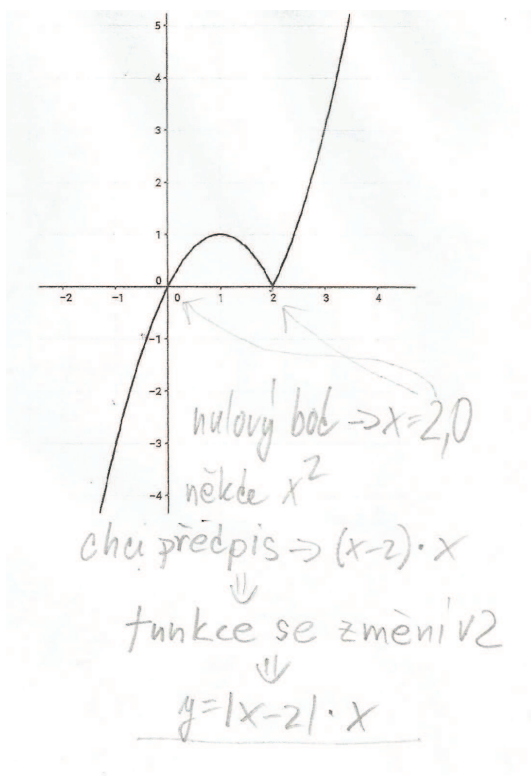 5
4
3
2
1
0
-2 -1 0 1 2 3 4
-1
-2
-3
-4
nulový bod -> x=2,0
někde x²
chci předpis -> (x-2)·x
⇓
funkce se změní v 2
⇓
y=|x-2|·x